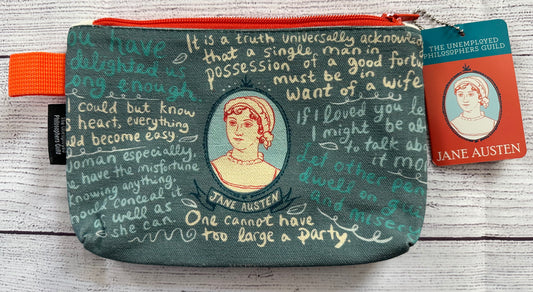 you have
delighted us
long enough.
It is a truth universally acknowled
that a single man in
possession of a good fortun
must be in
want of a wife
I could but know
s heart, everything
uld become easy.
If I loved you le
I might be ab
to talk ab
it mor
woman especially,
e have the misfortune
knowing anything,
hould conceal it
as well as
she can
Let other pen
dwell on gu
and misery
JANE AUSTEN
One cannot have
too large a party.
THE UNEMPLOYED
PHILOSOPHERS GUILD
JANE AUSTEN